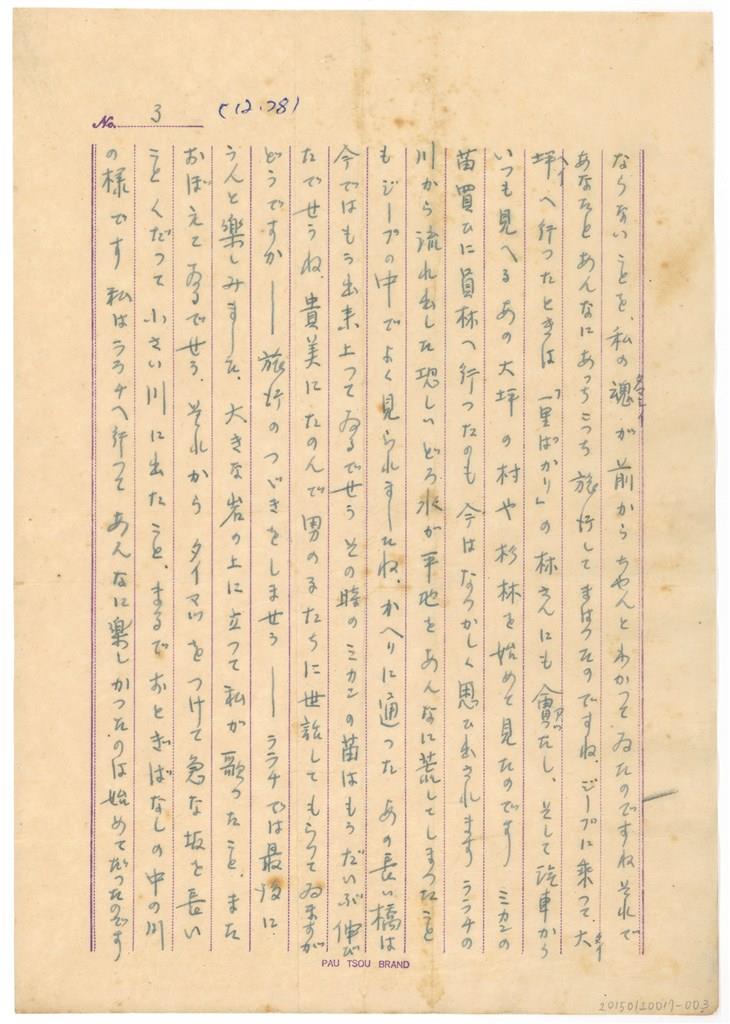 No. 3 (12.28)
ならないことを、私の魂が前からちやんとわかつてゐたのですねそれで
タマシイ
あなたとあんなにあつちこつち旅行してまはつたのですね。ジープに乗つて、大
タイ
坪へ行つたときは「一里ばかり」の林さんにも會つたし、そして汽車から
ヘイ
アツ
いつも見へるあの大坪の村や杉林を始めて見たのです ミカンの
苗買ひに員林へ行つたのも今はなつかしく思ひ出されます ララチの
川から流れ出した恐しいどろ水が平地をあんなに荒してしまつたこと
もジープの中でよく見られましたね、かへりに通つたあの長い橋は
今ではもう出来上つてゐるでせう その時のミカンの苗はもうだいぶ伸び
たでせうね、貴美にたのんで男のるたちに世話してもらつてゐますが
どうですか ── 旅行のつづきをしませう ── ララチでは最後に
うんと楽しみました、大きな岩の上に立つて私が歌つたこと、また
おぼえてゐるでせう、それから タイマツをつけて急な坂を長い
ことくだつて小さい川に出たこと、まるでおとぎばなしの中の川
の様です 私はララチへ行つてあんなに楽しかつたのは始めてだつたのです
PAU TSOU BRAND
20150120017-003